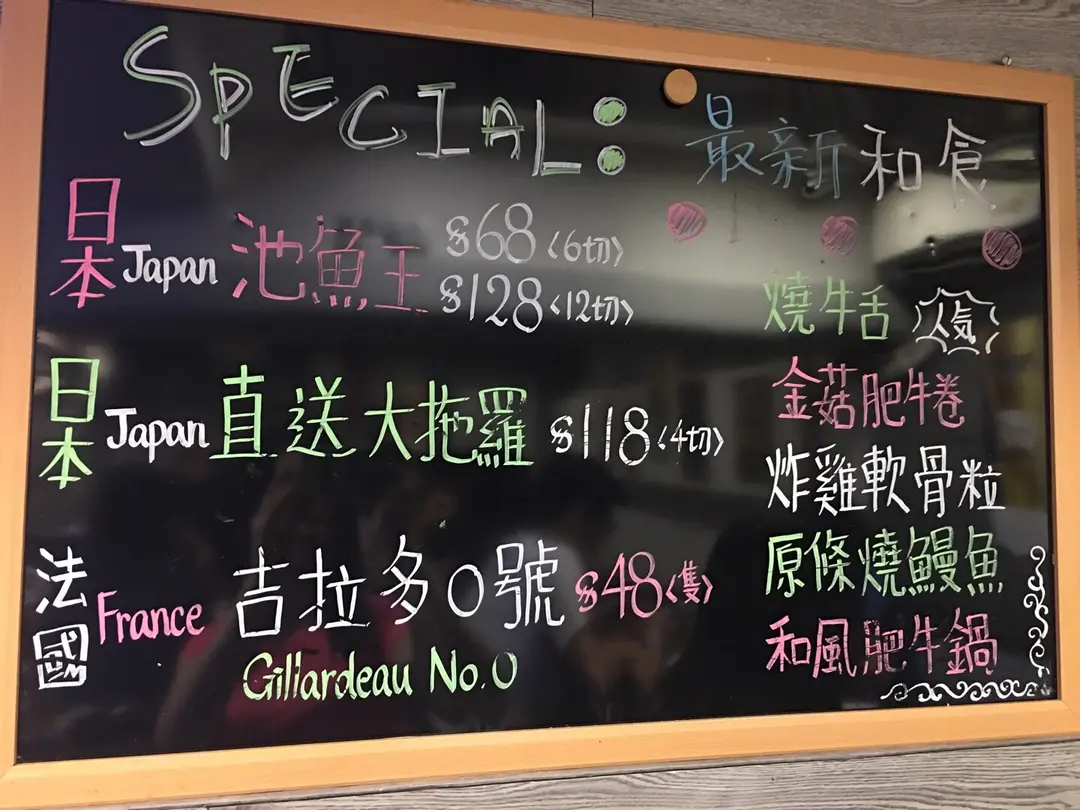 SPECIAL:
日本 Japan 池魚王 $68〈6切〉
$128〈12切〉
日本 Japan 直送大拖羅 $118〈4切〉
法國 France 吉拉多0號 $48〈隻〉
Gillardeau No.0
最新和食
燒牛舌 人気
金菇肥牛卷
炸雞軟骨粒
原條燒鰻魚
和風肥牛鍋